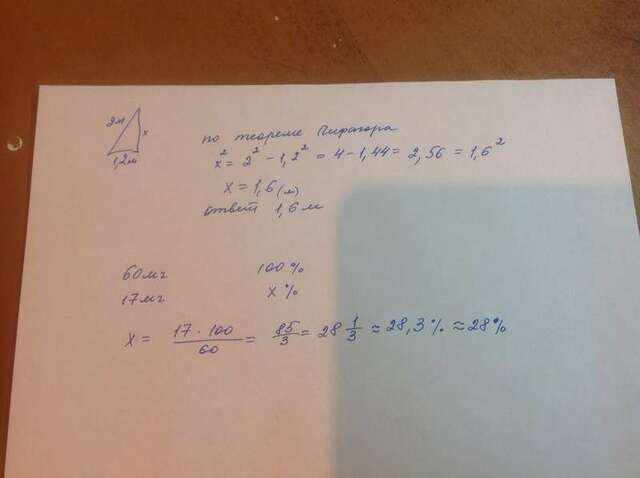 2м
x
1,2м
по теореме Пифагора
x² = 2² - 1,2² = 4 - 1,44 = 2,56 = 1,6²
x = 1,6 (м)
ответ 1,6 м
60мг 100%
17мг x%
x = 17 · 100 / 60 = 85/3 = 28 1/3 ≈ 28,3% ≈ 28%